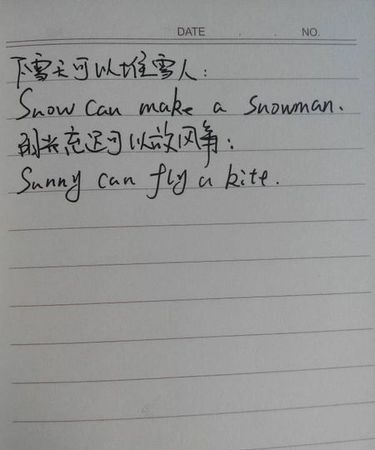 DATE . . NO.
下雪天可以堆雪人:
Snow can make a snowman.
阳光充足可以放风筝:
Sunny can fly a kite.